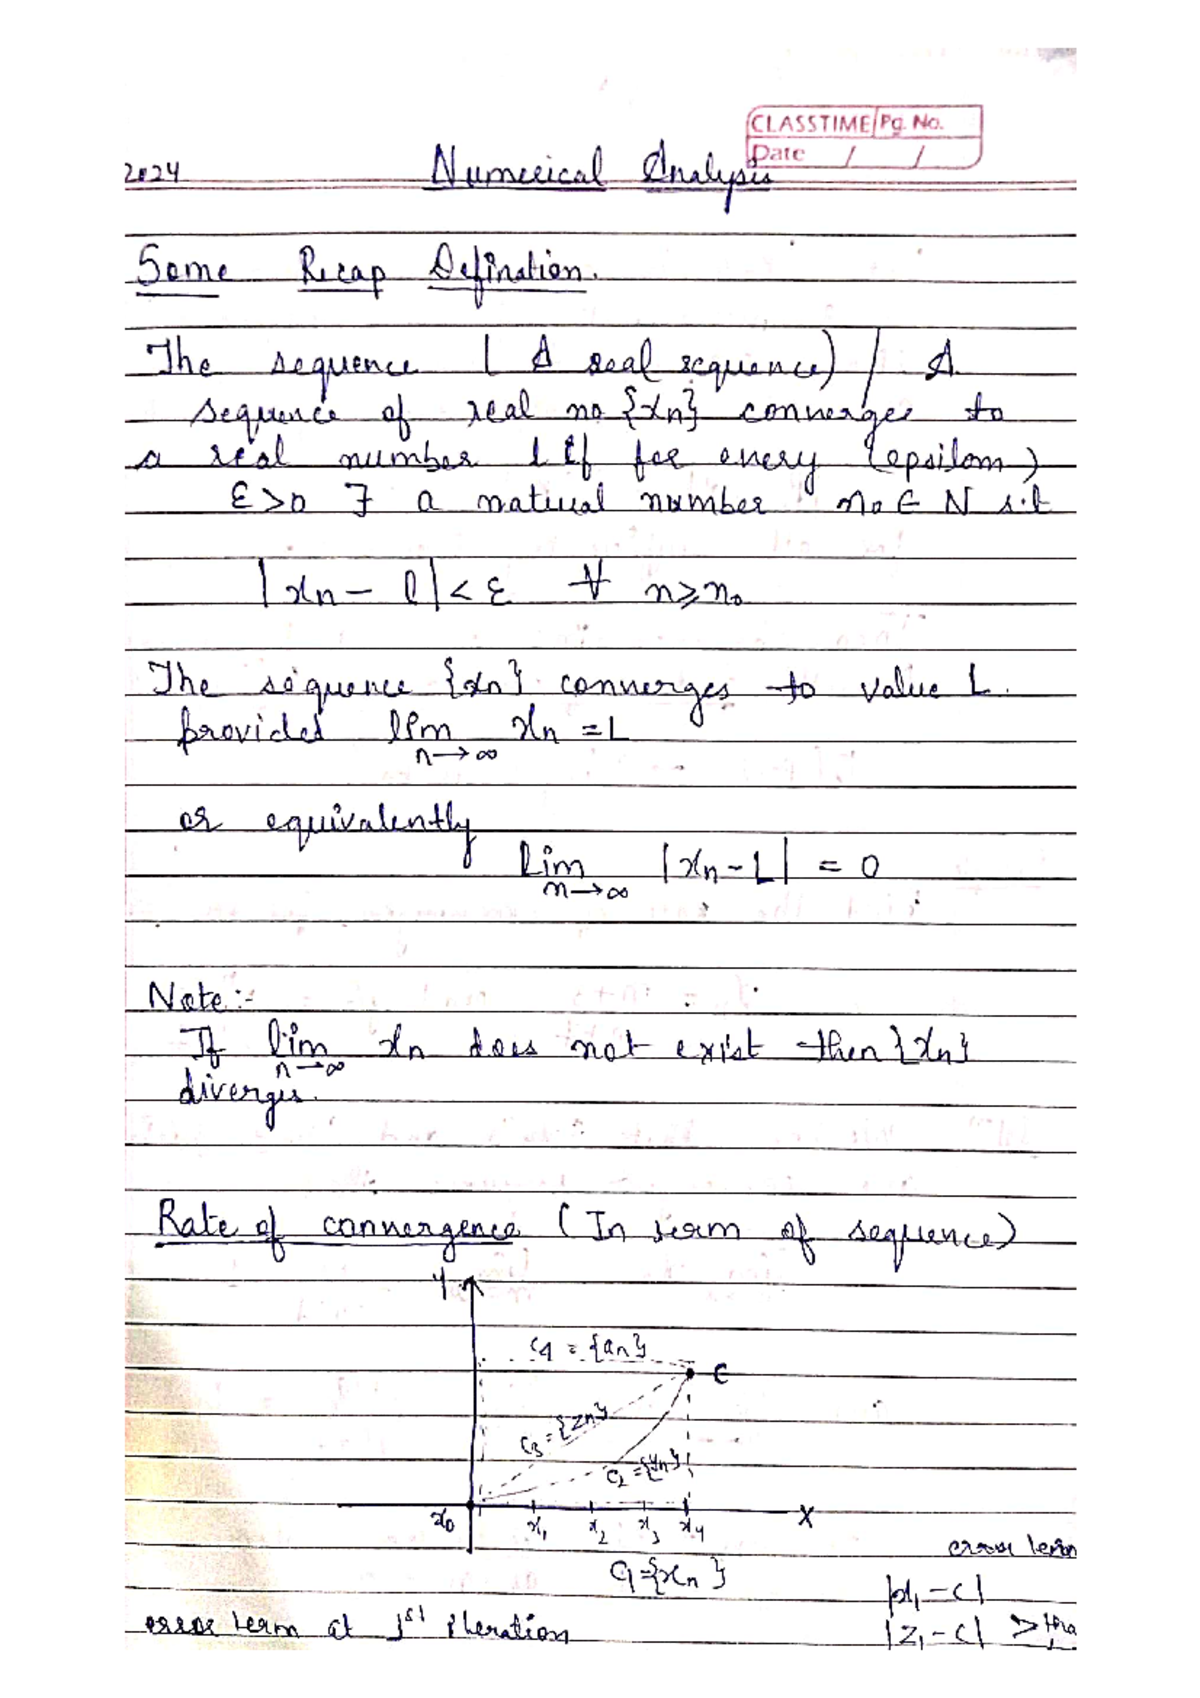 CLASSTIME Pg. No.
Date / /
2024 Numerical Analysis
Some Recap Defination.
The sequence ( A real sequence) / A
sequence of real no {xn} converges to
a real number l if for every (epsilom)
ε>0 ∃ a natural number n₀ ∈ N s.t
|xn - l| < ε ∀ n ≥ n₀
The sequence {xn} converges to value L.
provided lim xn = L
n→∞
or equivalently
lim |xn - L| = 0
n→∞
Note:-
If lim xn does not exist then {xn}
n→∞
diverges.
Rate of convergence (In term of sequence)
Y
C4 = {an}
C
C3 = {Zn}
C2 = {yn}
x₀ x₁ x₂ x₃ x₄ X
error term
C1={xn}
|x₁ - c|
error term at 1st iteration |z₁ - c| >